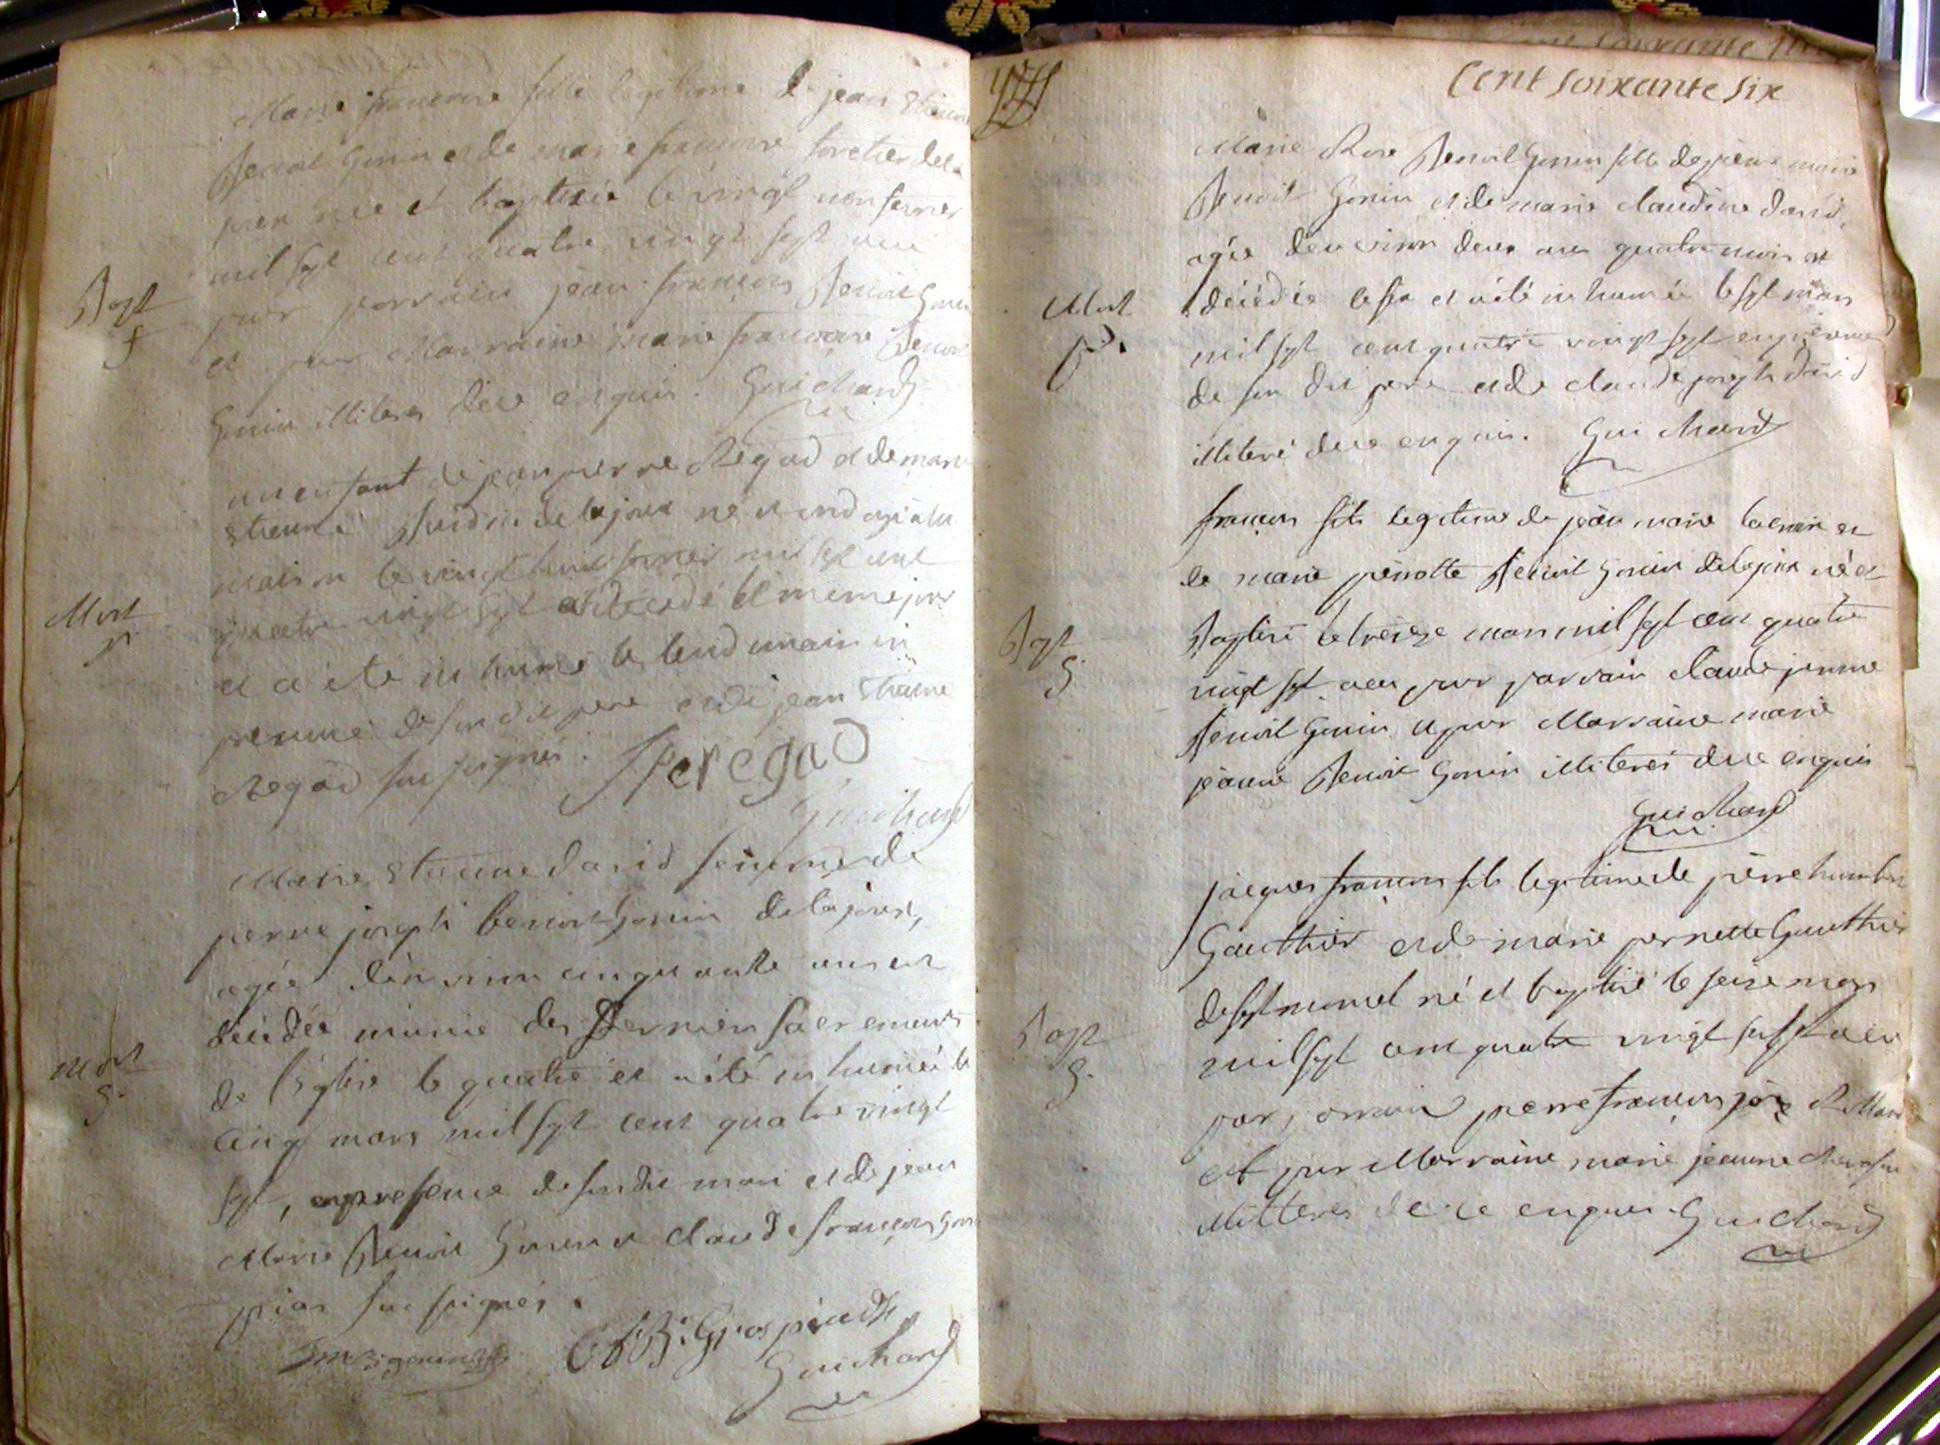 Marie francoise fille legitime de jean Etienne
Benoit Gonin et de marie francoise forestier dela
née et baptisée le vingt un fevrier
mil sept cent quatre vingt sept aeu
Bapt
pour parrain jean francois Benoit Gonin
et pour Marraine marie francoise Benoit
Gonin illiteres dece enquis. Guichard
un enfant de jean pierre Regad et de marie
etienne delajoux né et ondoyé àla
maison le vingt huit fevrier mil sept cent
Mort
quatre vingt sept et decedé le meme jour
et a été inhumé le lendemain en
presence de son dit pere et de jean Etienne
Regad sousignés. JPe regad
Guichard
Marie Etienne david femme de
pierre joseph benoit Gonin delajoux,
agée d'environ cinquante ans est
decedée munie des derniers sacrements
Mort
de l'Eglise le quatre et a été inhumée le
cinq mars mil sept cent quatre vingt
sept, en presence de son dit mari et de jean
Marie Benoit Gonin et claude francois
sousignés.
Guichard
Cent soixante six
Marie Rose Benoit Gonin fille de pierre marie
Benoit Gonin et de marie claudine david,
agée d'environ deux ans quatre mois est
Mort
décédée le six et a été inhumée le sept mars
mil sept cent quatre vingt sept en presence
de son dit pere et de claude joseph david
illiteré dece enquis. Guichard
francois fils legitime de jean marie et
de marie pernotte Benoit Gonin delajoux né et
Bapt
Baptisé le treize mars mil sept cent quatre
vingt sept aeu pour parrain claude
Benoit Gonin et pour Marraine marie
jeanne Benoit Gonin illiterés dece enquis
Guichard
jacques francois fils legitime de pierre humbert
Gauthier et de marie pernette Gauthier
de septmoncel né et baptisé le seize mars
Bapt
mil sept cent quatre vingt sept aeu
pour parrain pierre francois
et pour Marraine marie jeanne
illitteres de ce enquis Guichard